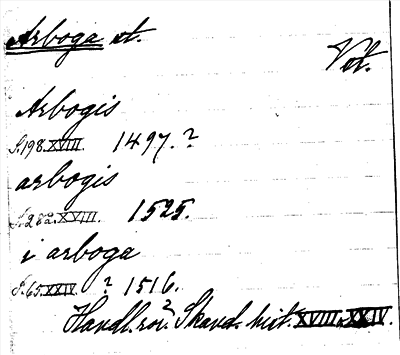 Arboga st.
Vst.
Arbogis
S. 198. XVIII. 1497. ?
arbogis
S. 282. XVIII. 1525.
i arboga
S. 65. XXIV. ? 1516.
Handl. rör. Skand. hist. XVIII. XXIV.